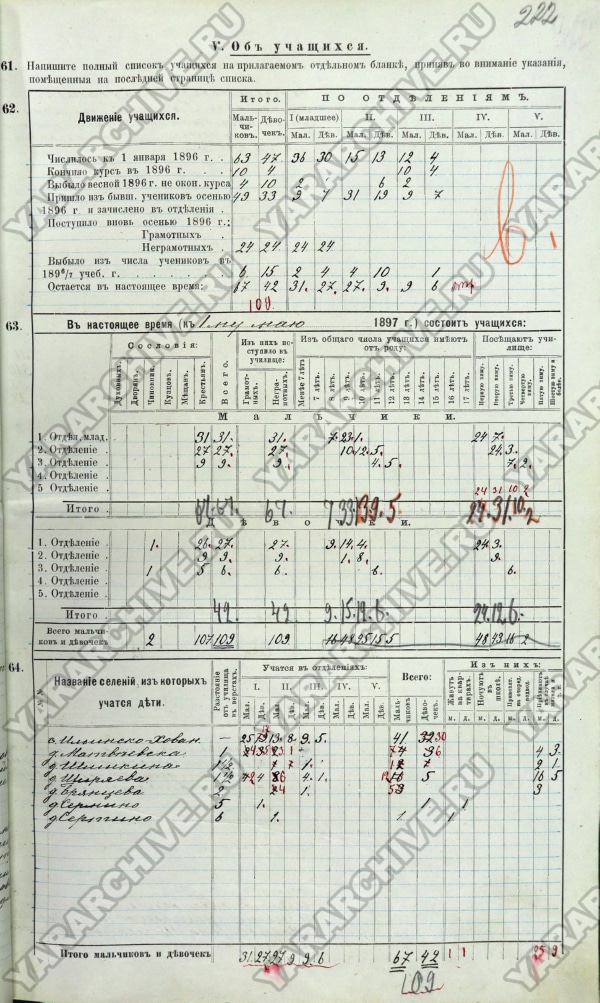 222
V. Объ учащихся.
61. Напишите полный списокъ учащихся на прилагаемомъ отдѣльномъ бланкѣ, принявъ во вниманіе указанія,
помѣщенныя на послѣдней страницѣ списка.
62.
Движеніе учащихся.
Итого. ПО ОТДѢЛЕНІЯМЪ.
Мальчиковъ. Дѣвочекъ. I (младшее) II. III. IV. V.
Мал. Дѣв. Мал. Дѣв. Мал. Дѣв. Мал. Дѣв. Мал. Дѣв.
Числилось къ 1 января 1896 г. . 63 47 36 30 15 13 12 4
Кончило курсъ въ 1896 г. . 10 4 10 4
Выбыло весной 1896 г. не окон. курса 4 10 2 6 2
Пришло изъ бывш. учениковъ осенью
1896 г. и зачислено въ отдѣленія . 49 33 9 7 31 19 9 7
Поступило вновь осенью 1896 г.:
Грамотныхъ .
Неграмотныхъ . 24 24 24 24
Выбыло изъ числа учениковъ въ
1896/7 учеб. г. . 6 15 2 4 4 10 1
Остается въ настоящее время: 67 42 31. 27. 27. 9. 9 6
109
63. Въ настоящее время (къ 1 му маю 1897 г.) состоитъ учащихся:
Сословія: Изъ нихъ поступило въ училище: Изъ общаго числа учащихся имѣютъ отъ роду: Посѣщаютъ училище:
Духовныхъ. Дворянъ. Чиновник. Купцовъ. Мѣщанъ. Крестьянъ. Всего. Грамотныхъ. Неграмотныхъ. Менѣе 7 лѣтъ 7 лѣтъ. 8 лѣтъ. 9 лѣтъ. 10 лѣтъ. 11 лѣтъ. 12 лѣтъ. 13 лѣтъ. 14 лѣтъ. 15 лѣтъ. 16 лѣтъ. 17 лѣтъ. Первую зиму. Вторую зиму. Третью зиму. Четвертую зиму. Пятую зиму. Шестую зиму и болѣе.
Мальчики.
1. Отдѣл. млад. 31 31. 31. 7. 23. 1. 24 7.
2. Отдѣленіе . 27 27. 27. 10. 12. 5. 24. 3.
3. Отдѣленіе . 9 9. 9. 4. 5. 7. 2.
4. Отдѣленіе .
5 Отдѣленіе . 24 31 10 2
Итого . 67. 67. 67. 24. 31. 10. 2
Дѣвочки.
1. Отдѣленіе . 1. 26. 27. 27. 9. 14. 4. 24. 3.
2. Отдѣленіе . 9 9. 9. 1. 8. 9.
3. Отдѣленіе . 1 5 6. 6. 6. 6.
4. Отдѣленіе .
5. Отдѣленіе .
Итого . 42. 42 9. 15. 12. 6. 24. 12. 6.
Всего мальчиковъ и дѣвочекъ 2 107 109 109 16 48 25 15 5 48 43 16 2
64.
№№ Названіе селеній, изъ которыхъ учатся дѣти.
Разстояніе отъ училища въ верстахъ. Учатся въ отдѣленіяхъ: Всего: Изъ нихъ:
I. II. III. IV. V. Мальчиковъ Дѣвочекъ. Живутъ на квартирахъ. Ночуютъ въ школѣ.
Мал. Дѣв. Мал. Дѣв. Мал. Дѣв. Мал. Дѣв. Мал. Дѣв. м. д. м. д. м. д. м. д.
с. Ильинско-Хован.
д. Матвѣевка 1 4 3.
д. Шишкина 1½
д. Ширяева 1½ 4. 1. 5 16 5
д. Брянцева 2 24 1. 3
д. 5 1. 1 1
д. 6 1. 1. 1
Итого мальчиковъ и дѣвочекъ 31. 27. 27 9 9 6 67 42 1 1
109
YARARCHIVE.RU